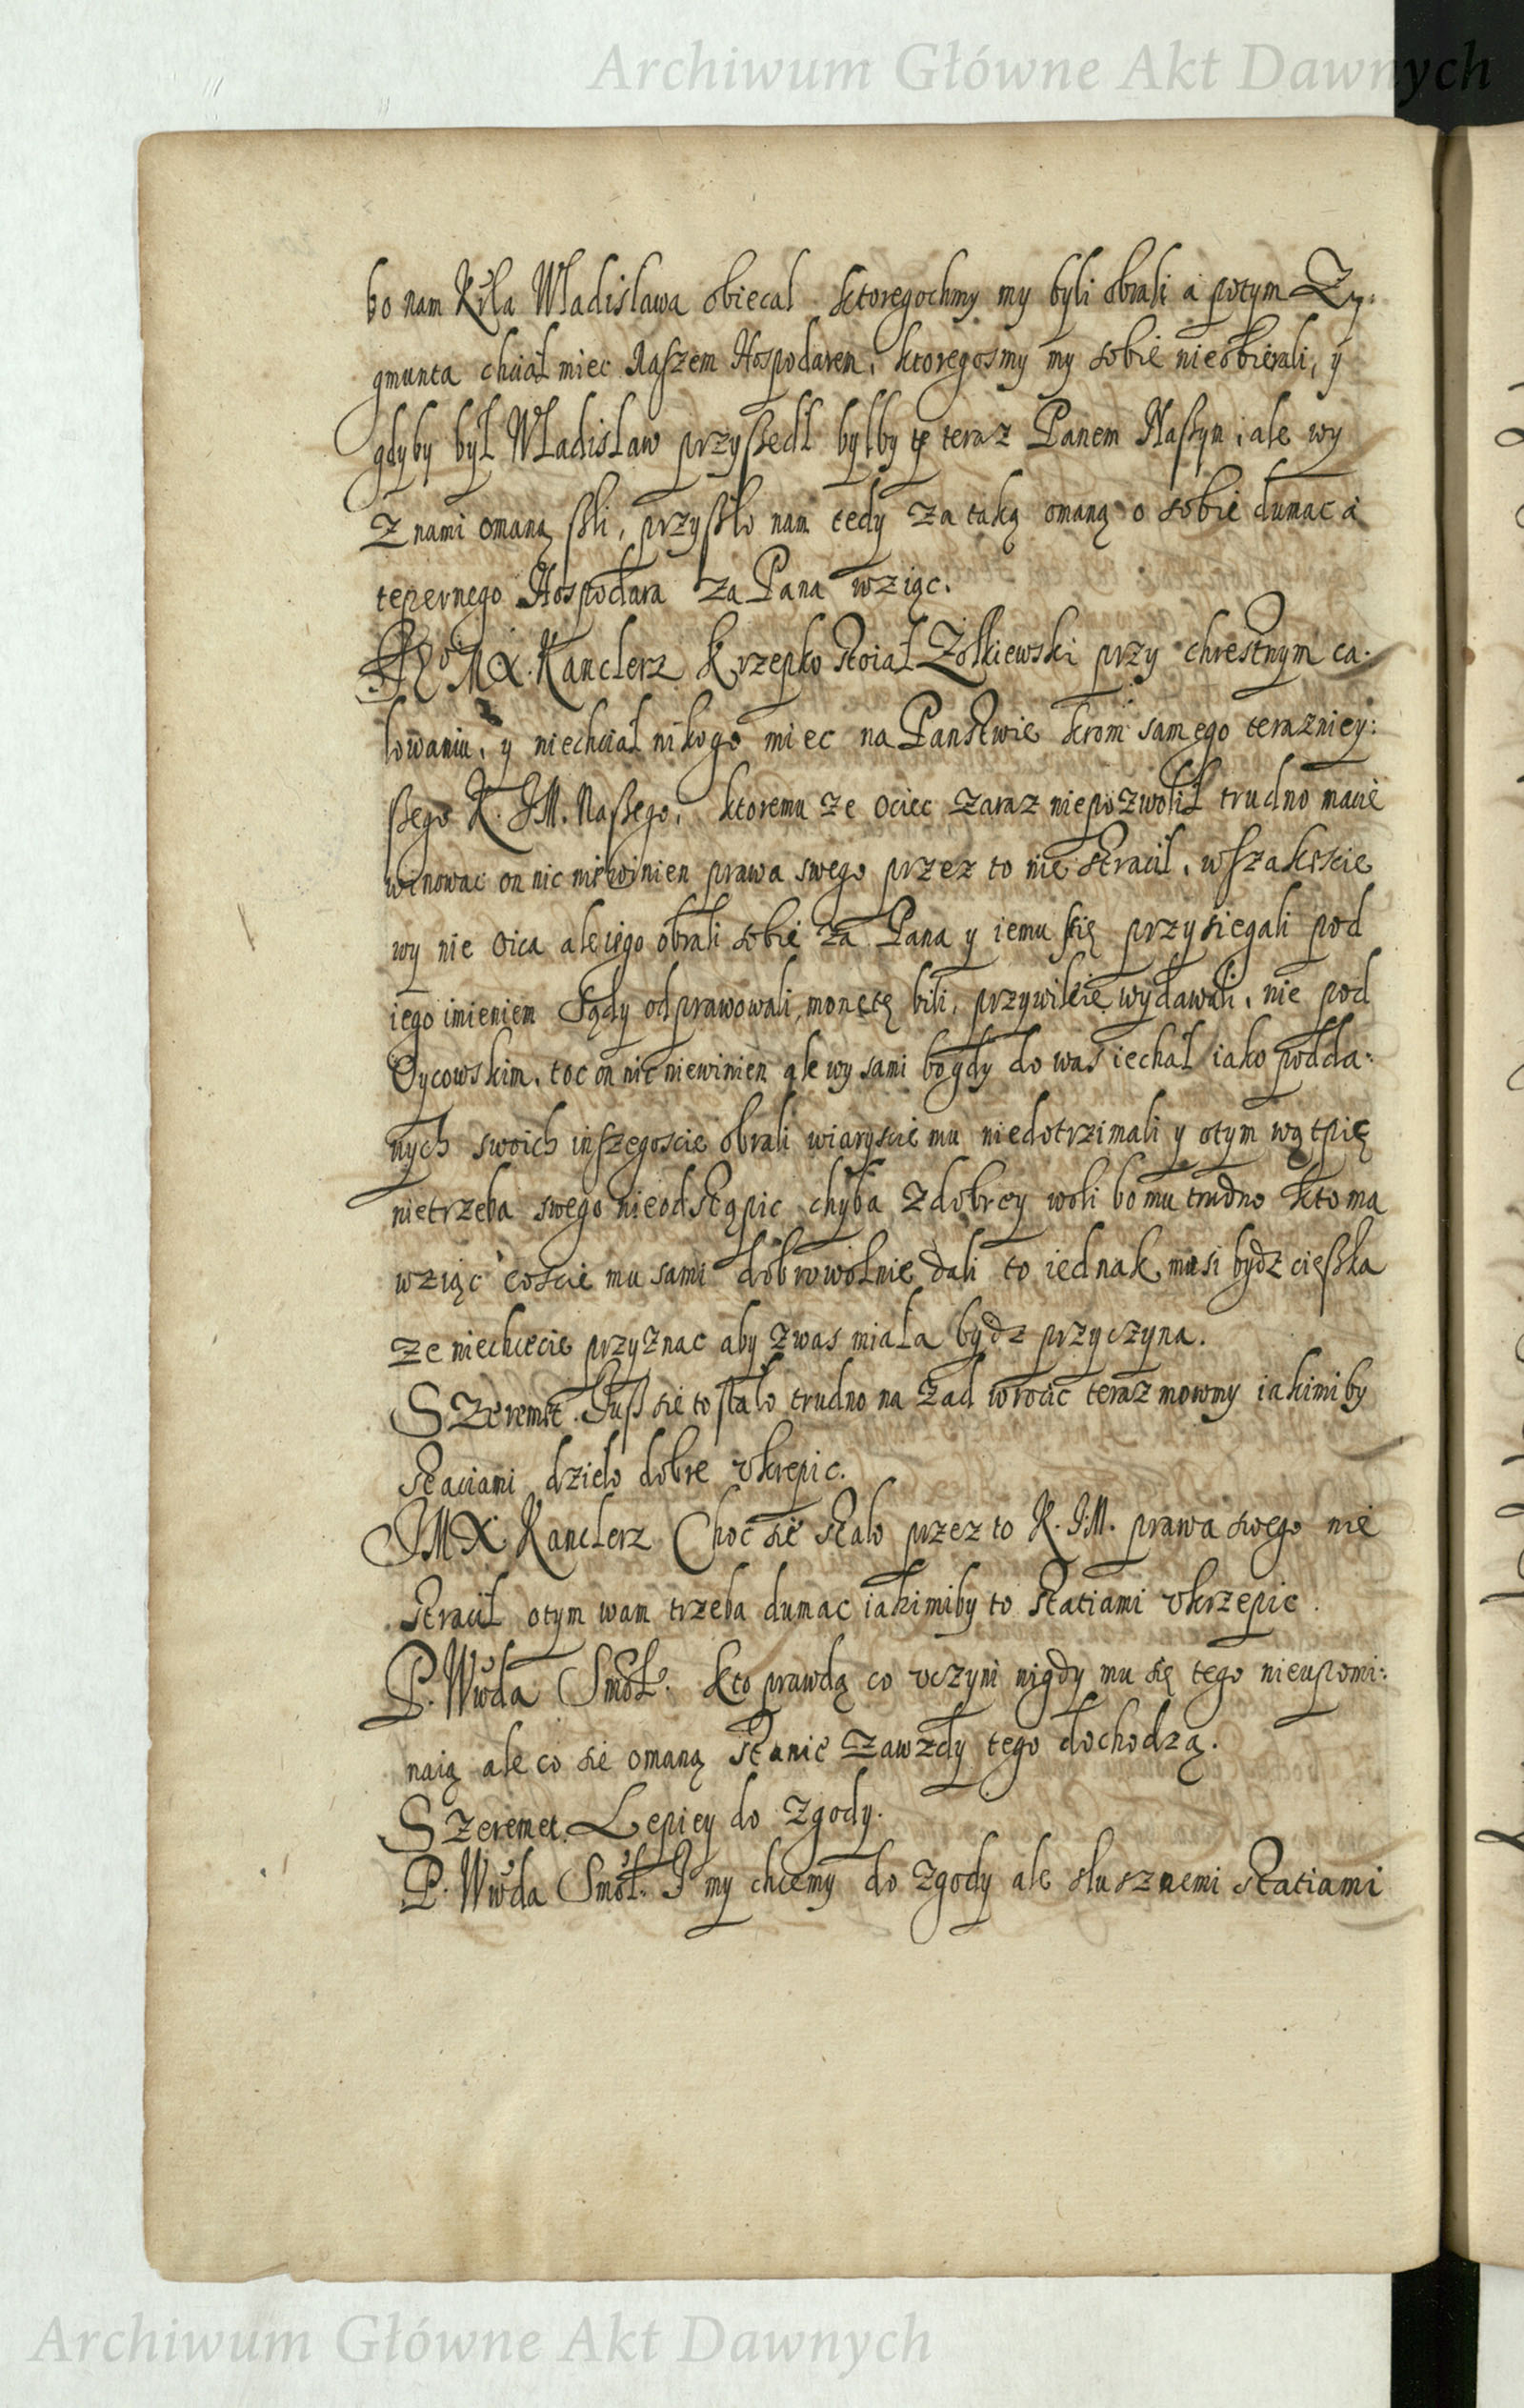 Archiwum Główne Akt Dawnych
bo nam Krla Wladislawa obiecal ktoregochmy my byli obrali a potym Zy:
gmunta chciał miec Naszem Hospodarem, ktoregosmy my sobie nieobierali, y
gdyby był Władisław przyßedł byłby teraz Panem Naßym, ale wy
z nami omaną ßli, przyßło nam tedy za taką omaną o sobie dumac a
tepernego Hospodara za Pana wziąc.
JMX. Kanclerz Krzepko stoiał Żołkiewski przy chrestnym ca:
lowaniu, y niechciał nikogo miec na Panstwie krom samego terazniey:
ßego K. JM. Naßego, ktoremu ze ociec zaraz niepozwolił trudno macie
winowac on nic niewinien prawa swego przez to nie stracił, wszakescie
wy nie oica ale iego obrali sobie za Pana y iemu się przysiegali pod
iego imieniem Sądy odprawowali, monetę bili, przywileie wydawali, nie pod
Oycowskim, toc on nic niewinien ale wy sami bo gdy do was iechał iako podda:
nych swoich inszegoscie obrali wiaryscie mu niedotrzimali y otym wątpię
nietrzeba swego nieodstąpic chyba z dobrey woli bo mu trudno kto ma
wziąc coscie mu sami dobrowolnie dali to iednak musi bydz cießka
ze niechcecie przyznac aby z was miała bydz przyczyna.
Szeremet. Juß sie to stalo trudno na zad wrocic teraz mowmy iakimiby
staciami dzieło dobre vkrepic.
JMX Kanclerz Choc sie stalo przez to K. JM. prawa swego nie
stracił otym wam trzeba dumac iakimiby to statiami vkrzepic.
P. Wwda Smol. kto prawdą co vczyni nigdy mu się tego nieupomi:
naią ale co sie omaną stanie zawzdy tego dochodzą.
Szeremet. Lepiey do zgody.
P. Wwda Smol. I my chcemy do zgody ale slusznemi statiami
Archiwum Główne Akt Dawnych